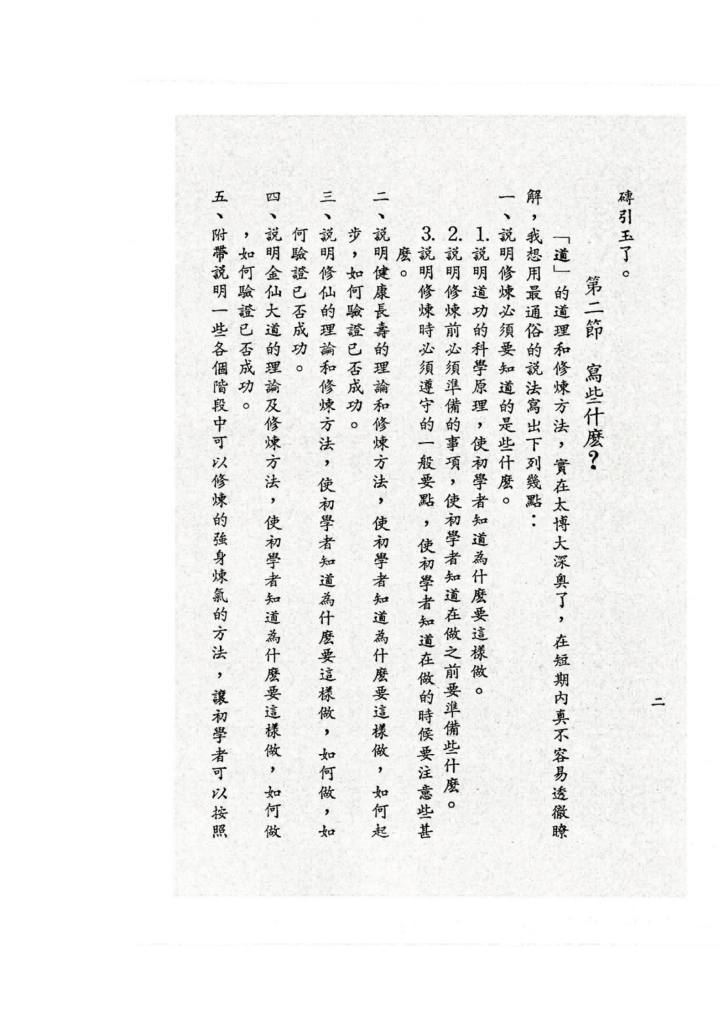 二
磚引玉了。
第二節 寫些什麼？
「道」的道理和修煉方法，實在太博大深奧了，在短期內真不容易透徹瞭
解，我想用最通俗的說法寫出下列幾點：
一、說明修煉必須要知道的是些什麼。
1.說明道功的科學原理，使初學者知道為什麼要這樣做。
2.說明修煉前必須準備的事項，使初學者知道在做之前要準備些什麼。
3.說明修煉時必須遵守的一般要點，使初學者知道在做的時候要注意些甚
麼。
二、說明健康長壽的理論和修煉方法，使初學者知道為什麼要這樣做，如何起
步，如何驗證已否成功。
三、說明修仙的理論和修煉方法，使初學者知道為什麼要這樣做，如何做，如
何驗證已否成功。
四、說明金仙大道的理論及修煉方法，使初學者知道為什麼要這樣做，如何做
，如何驗證已否成功。
五、附帶說明一些各個階段中可以修煉的強身煉氣的方法，讓初學者可以按照